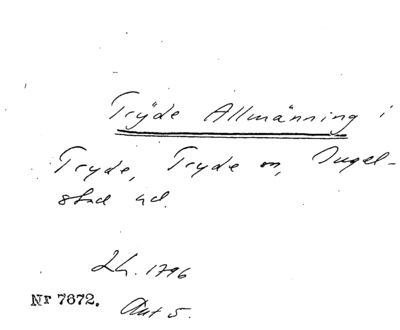 Tryde Allmänning i
Tryde, Tryde sn, Ingel-
stad hd.
Lh. 1796
Nr 7672. Aut 5.